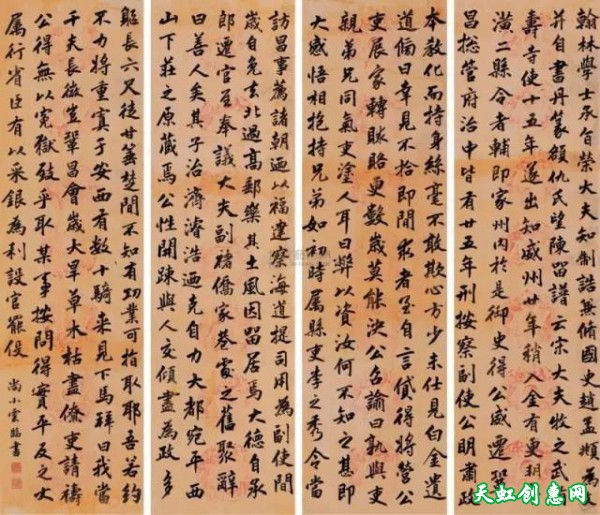 翰林學士承旨榮大夫知制誥兼修國史趙孟頫為文
并自書丹篆額仇氏望陳留譜云宋大夫牧之武
壽寺使十五年遂出知威州廿年稍入金有更玥
潢二縣令者輔即家州內於是御史得公威遷鞏
昌揔管府治中皆有廿五年刑按察副使公明肅政
本教化而持身絲毫不敢欺心方少未仕見白金遺
道傴曰幸見不拾即間求者至自言貸得將營公
吏展家轉賕賂更數歲莫能決公名諭曰孰與吏
親弟兄同氣吏塗人耳曰弊以資汝何不知之甚即
大感悟相抱持兄弟如初時屬縣吏李之秀令當
訪昌事薦諸朝迺以福建察海道提司用為副使閩
歲自免去北過高郵樂其土風因留居焉大德自承
郎遷官至奉議大夫副禇僑家葬處之舊聚辭
曰善人矣其子治濟濬浩迺克自力大都宛平西
山下莊之原蔵焉公性開踈與人交傾盡為政多
軀長六尺徒廿簿楚間不知有功業可指取耶吾若約
不力將重寘于安西有數十騎来見下馬拜曰我當
千夫長微豈鞏昌會歲大旱草木枯盡僚吏請禱
公得無以寃獄致乎取某事按問得實平反之士
屬行省臣有以采銀為利設官罷伇
尚小雲臨書
天虹创惠网